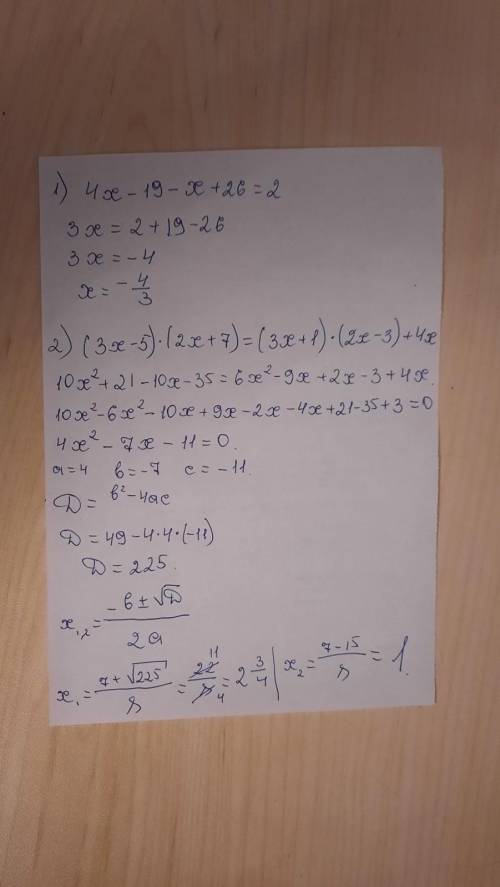 1) 4x - 19 - x + 26 = 2
3x = 2 + 19 - 26
3x = -4
x = -4/3
2) (3x-5)·(2x+7) = (3x+1)·(2x-3)+4x
10x² + 21 - 10x - 35 = 6x² - 9x + 2x - 3 + 4x.
10x² - 6x² - 10x + 9x - 2x - 4x + 21 - 35 + 3 = 0
4x² - 7x - 11 = 0.
a = 4 b = -7 c = -11.
D = b² - 4ac
D = 49 - 4·4·(-11)
D = 225.
x₁,₂ = (-b ± √D)/(2a)
x₁ = (7 + √225)/8 = 22/8 = 11/4 = 2 3/4 | x₂ = (7 - 15)/8 = 1.